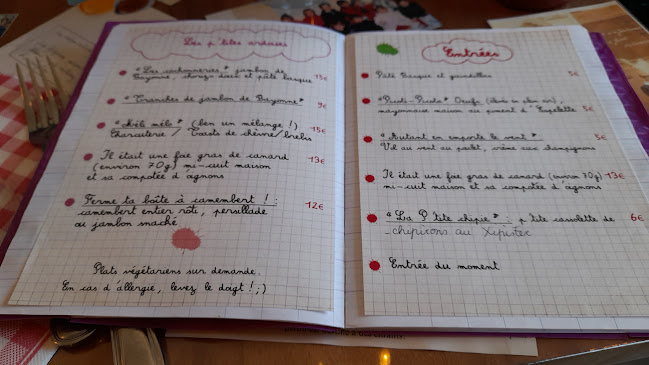 Les p'tites ardoises
"Les cochonneries" jambon de
Bayonne, chorizo doux et pâté basque 15€
"Tranches de jambon de Bayonne" 9€
"Méli mélo" (ben un mélange !)
Charcuterie / Toasts de chèvre/brebis 15€
Il était une foie gras de canard
(environ 70g) mi-cuit maison
et sa compotée d'oignons 13€
Ferme ta boîte à camembert ! :
camembert entier rôti, persillade
ou jambon snaché 12€
Plats végétariens sur demande.
En cas d'allergie, levez le doigt ! ;)
Entrées
Pâté Basque et grenailles 5€
"Picoli-Picola" Oeufs (élevés en plein air),
mayonnaise maison au piment d'Espelette 5€
"Autant en emporte le vent"
Vol au vent au poulet, crème aux champignons 5€
Il était une foie gras de canard (environ 70g)
mi-cuit maison et sa compotée d'oignons 13€
"La P'tite chipie" : p'tite cassolette de
chipirons au 6€
Entrée du moment